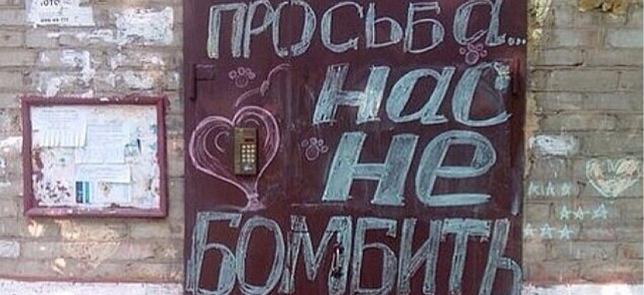 ПРОСЬБА...
НАС
НЕ
БОМБИТЬ